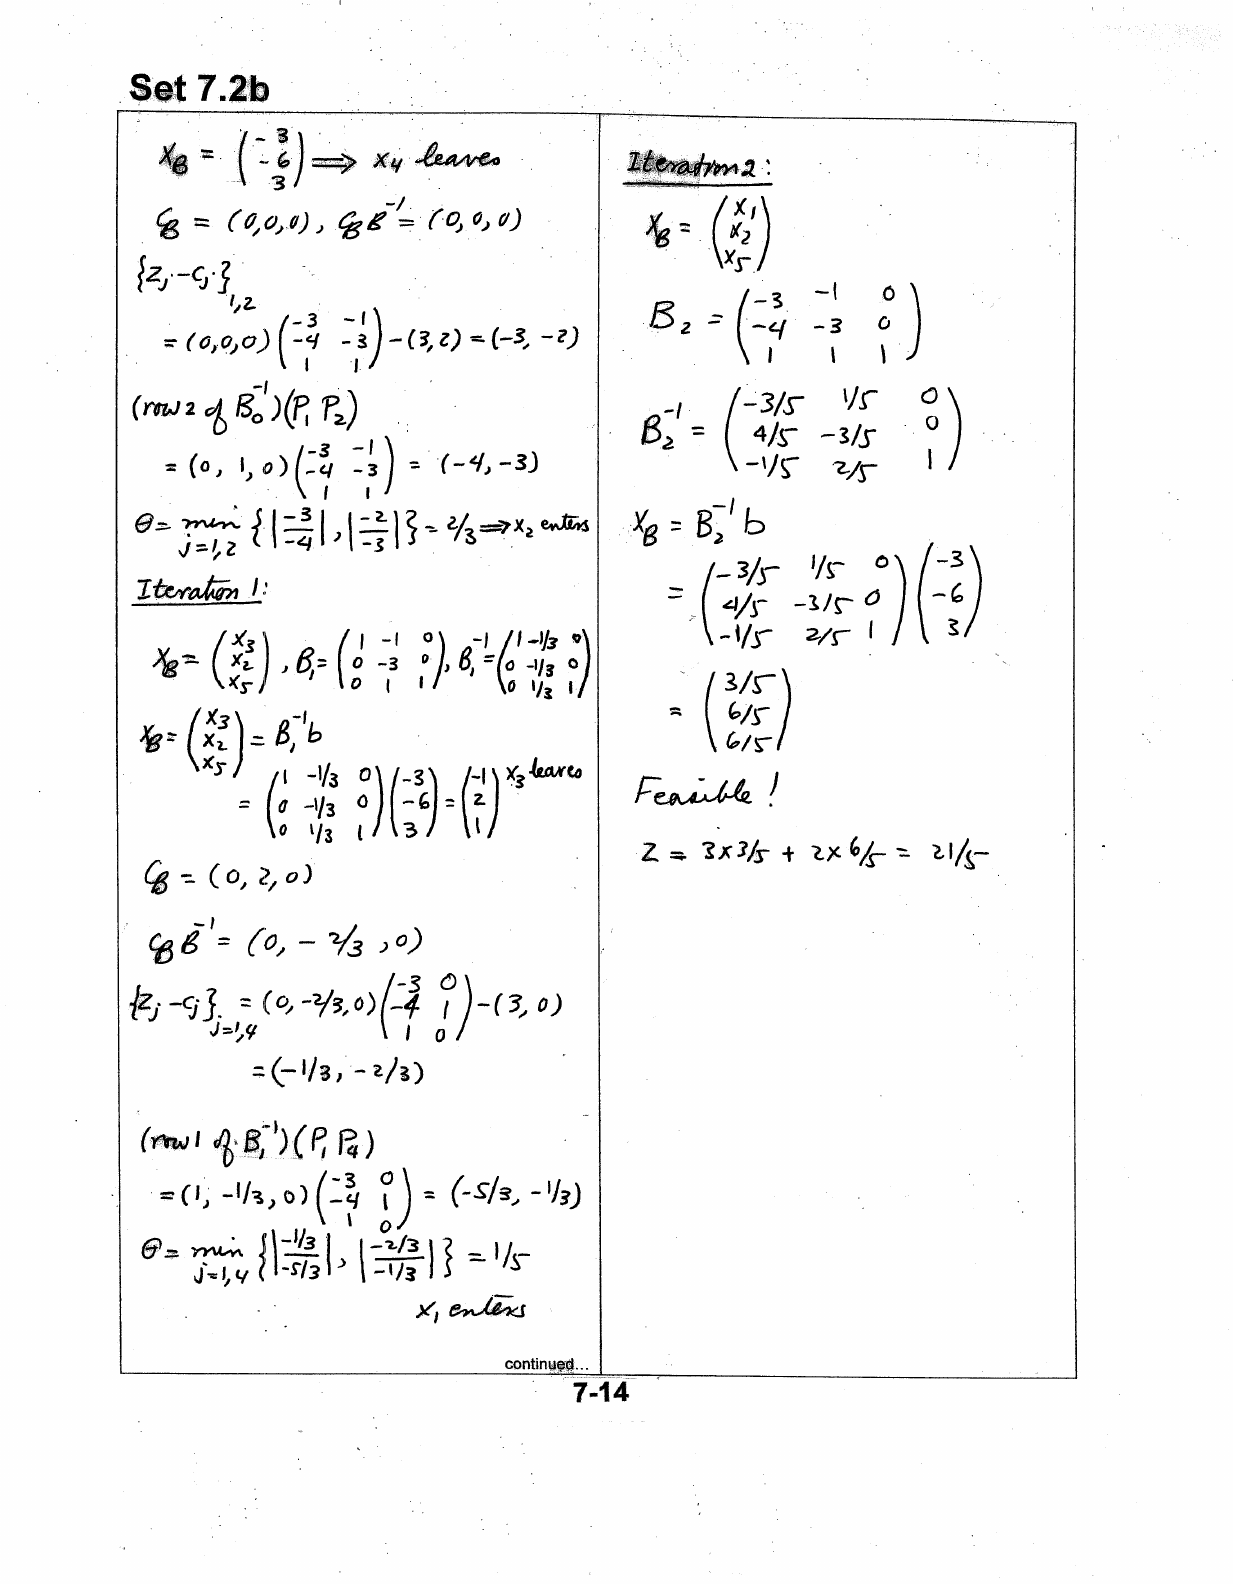 Set 7.2b
X_B = (-3 -6 3) ⟹ x4 leaves
C_B = (0,0,0), C_B B^-1 = (0, 0, 0)
{Zj - Cj}1,2
= (0,0,0) (-3 -1
-4 -3
1 1) - (3, 2) = (-3, -2)
(row 2 of B0^-1)(P1 P2)
= (0, 1, 0) (-3 -1
-4 -3
1 1) = (-4, -3)
θ = min j=1,2 {|-3/-4|, |-2/-3|} = 2/3 ⟹ x2 enters
Iteration 1:
X_B = (x3 x2 x5), B1 = (1 -1 0
0 -3 0
0 1 1), B1^-1 = (1 -1/3 0
0 -1/3 0
0 1/3 1)
X_B = (x3 x2 x5) = B1^-1 b
= (1 -1/3 0
0 -1/3 0
0 1/3 1) (-3 -6 3) = (-1 2 1) x3 leaves
C_B = (0, 2, 0)
C_B B^-1 = (0, - 2/3, 0)
{Zj - Cj} j=1,4 = (0, -2/3, 0) (-3 0
-4 1
1 0) - (3, 0)
= (-1/3, -2/3)
(row 1 of B1^-1)(P1 P4)
= (1, -1/3, 0) (-3 0
-4 1
1 0) = (-5/3, -1/3)
θ = min j=1,4 {|-1/3 / -5/3|, |-2/3 / -1/3|} = 1/5
x1 enters
continued...
Iteration 2:
X_B = (x1 x2 x5)
B2 = (-3 -1 0
-4 -3 0
1 1 1)
B2^-1 = (-3/5 1/5 0
4/5 -3/5 0
-1/5 2/5 1)
X_B = B2^-1 b
= (-3/5 1/5 0
4/5 -3/5 0
-1/5 2/5 1) (-3 -6 3)
= (3/5 6/5 6/5)
Feasible!
Z = 3x3/5 + 2x6/5 = 21/5
7-14